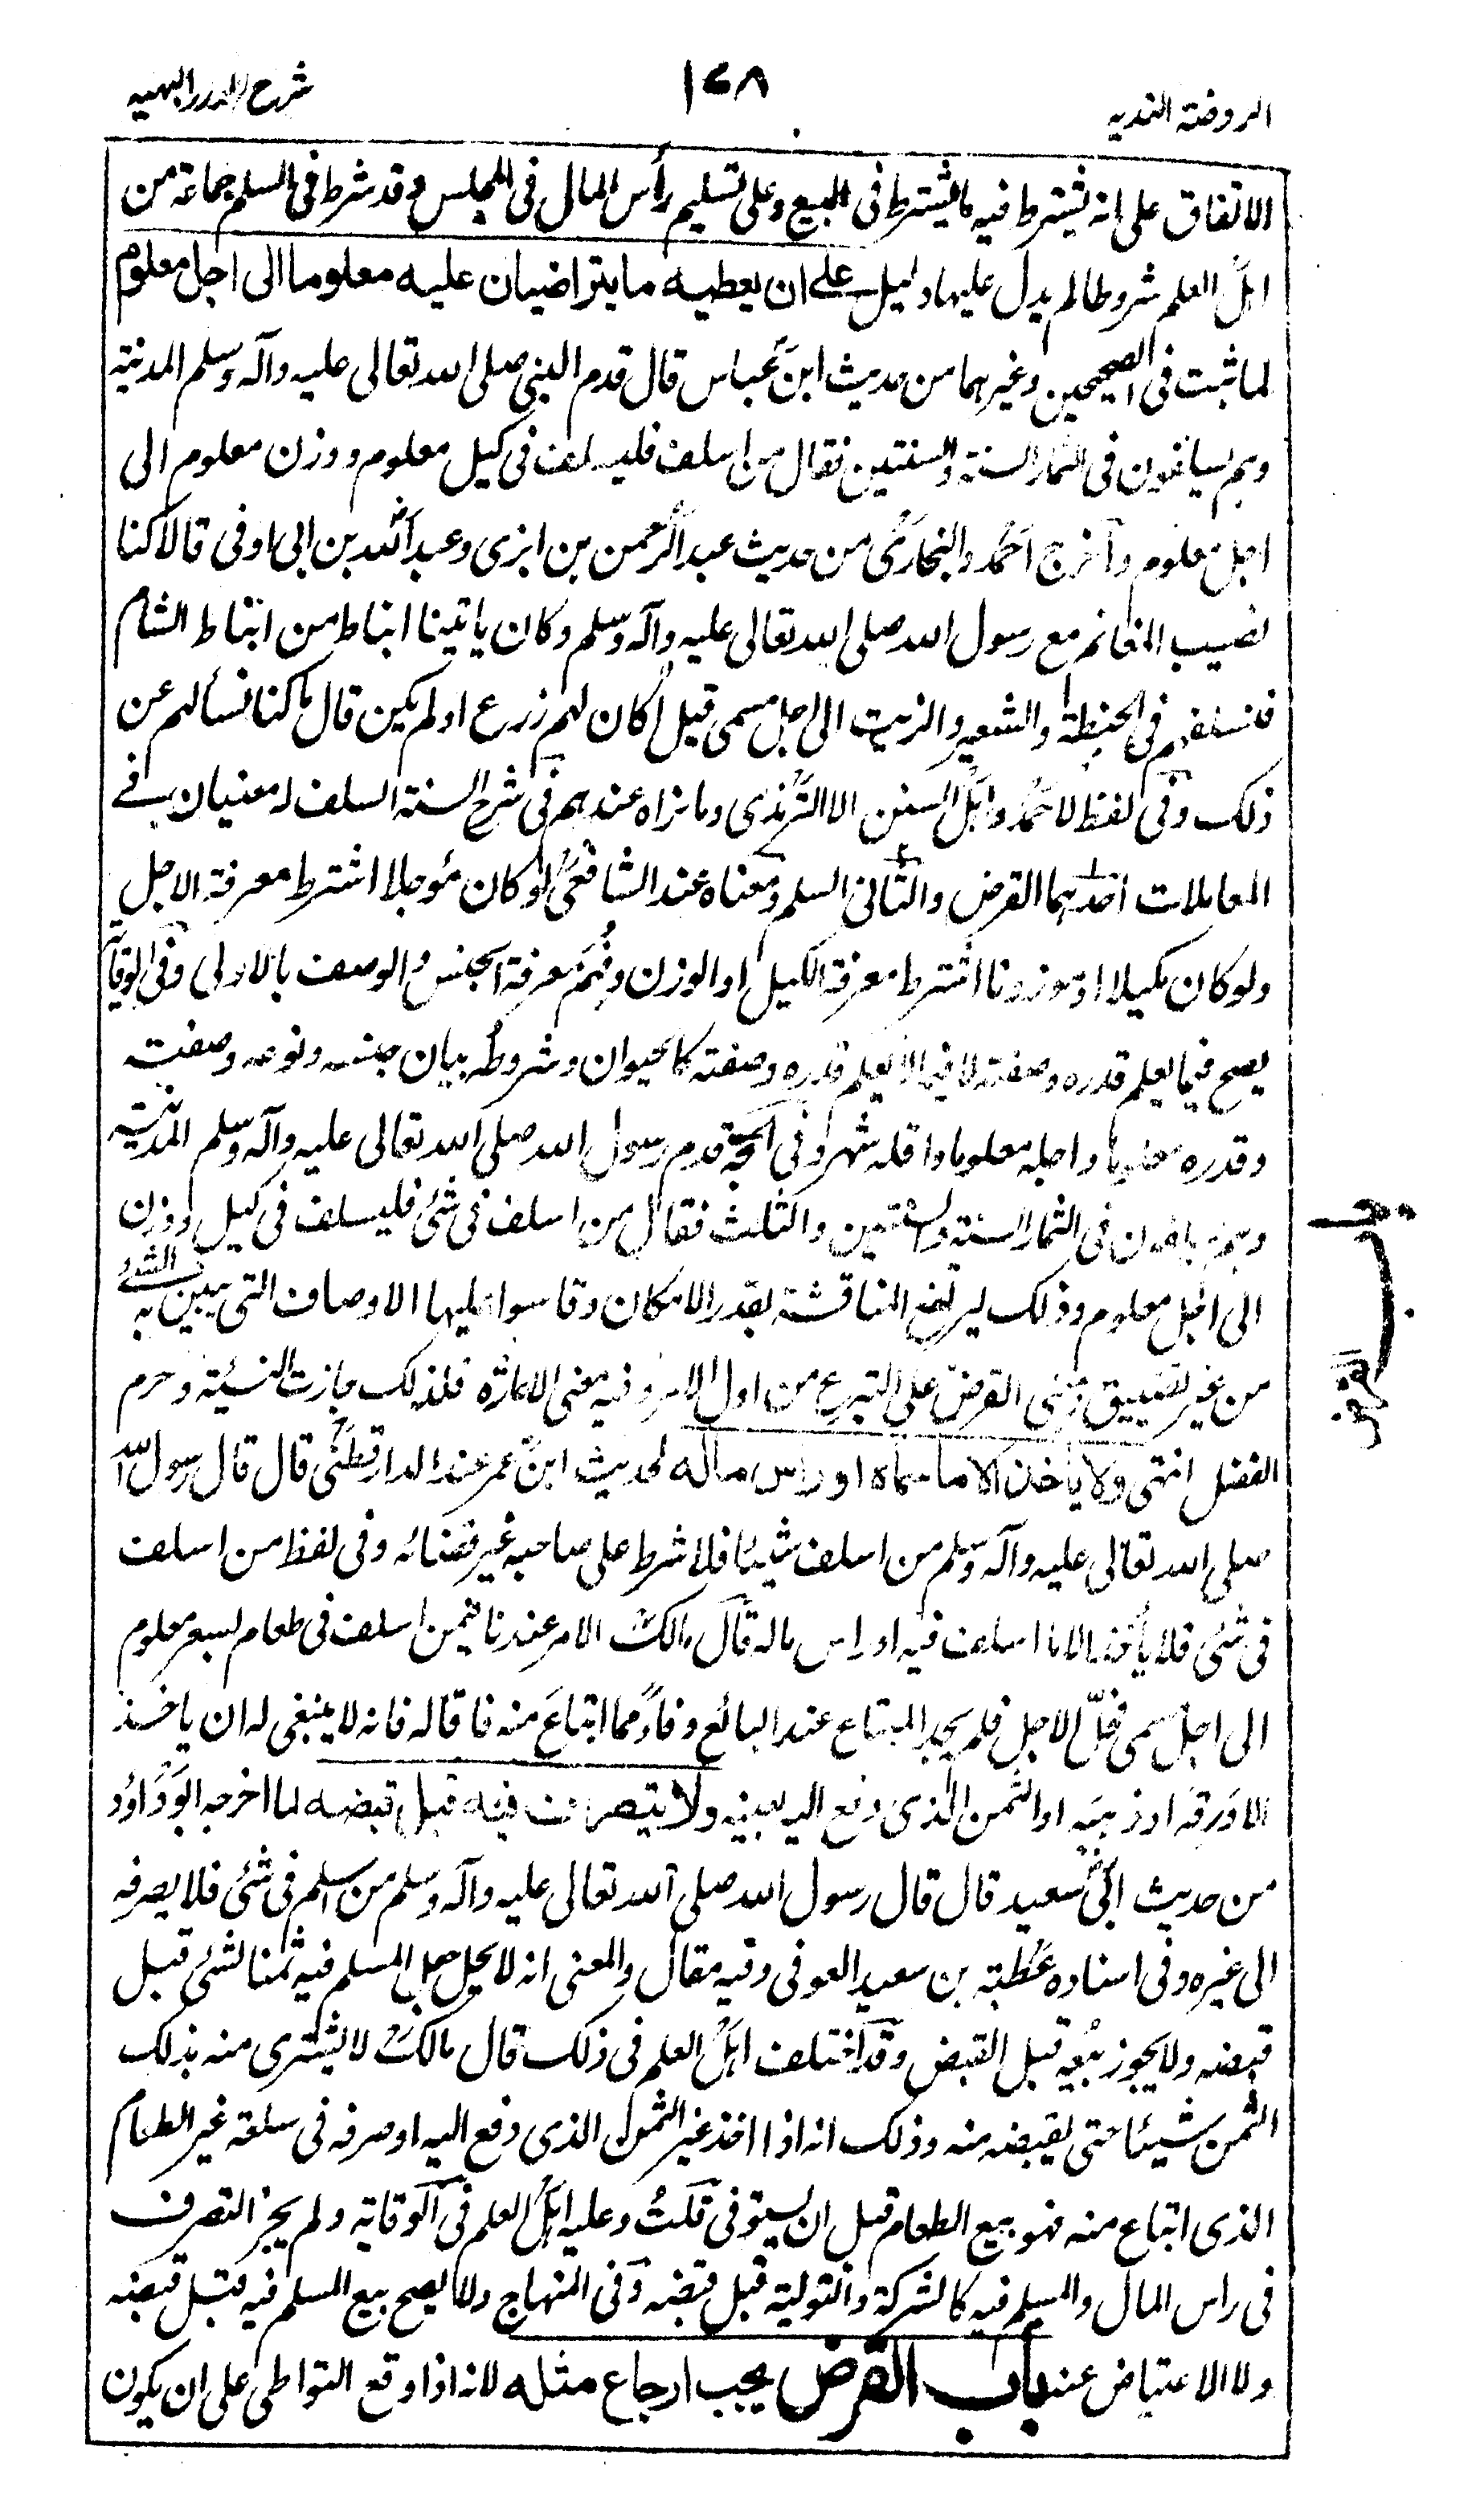 الروضة الندية
١٤٨
شرح الدرر البهية
الاتفاق على انه يشترط فيه ما يشترط فى البيع وعلى تسليم رأس المال فى المجلس وقد شرط فى السلم جماعة من
اهل العلم شروطا لم يدل عليها دليل على ان يعطيه ما يتراضيان عليه معلوما الى اجل معلوم
لما ثبت فى الصحيحين وغيرهما من حديث ابن عباس قال قدم النبى صلى الله تعالى عليه وآله وسلم المدينة
وهم يسلفون فى الثمار السنة والسنتين فقال من اسلف فليسلف فى كيل معلوم ووزن معلوم الى
اجل معلوم وأخرج احمد والبخارى من حديث عبد الرحمن بن ابزى وعبد الله بن ابى اوفى قالا كنا
نصيب المغانم مع رسول الله صلى الله تعالى عليه وآله وسلم وكان ياتينا انباط من انباط الشام
فنسلفهم فى الحنطة والشعير والزيت الى اجل مسمى قيل أكان لهم زرع او لم يكن قال ما كنا نسألهم عن
ذلك وفى لفظ لاحمد واهل السنن الا الترمذى وما نراه عندهم فى شرح السنة السلف له معنيان فى
المعاملات احدهما القرض والثانى السلم ومعناه عند الشافعى لو كان مؤجلا اشترط معرفة الاجل
ولو كان مكيلا او موزونا اشترط معرفة الكيل او الوزن وفهم معرفة الجنس والوصف بالاولى وفى الوقاية
يصح فيما يعلم قدره وصفته لا فيما لا يعلم قدره وصفته كالحيوان وشروطه بيان جنسه ونوعه وصفته
وقدره معلوما واجله معلوما واقله شهر وفى الحجة قدم رسول الله صلى الله تعالى عليه وآله وسلم المدينة
وهم يسلفون فى الثمار السنة والسنتين والثلث فقال من اسلف فى شئ فليسلف فى كيل ووزن
الى اجل معلوم وذلك ليرتفع المناقشة بقدر الامكان وقاسوا عليها الاوصاف التى يبين به الشئ
من غير تضييق ومبنى القرض على التبرع من اول الامر وفيه معنى الاعارة فلذلك جازت النسيئة وحرم
الفضل انتهى ولا يأخذ الا ما سماه او رأس ماله لحديث ابن عمر عند الدارقطنى قال قال رسول الله
صلى الله تعالى عليه وآله وسلم من اسلف شيئا فلا شرط على صاحبه غير قضائه وفى لفظ من اسلف
فى شئ فلا يأخذ الا ما اسلف فيه او راس ماله قال مالك الامر عندنا فيمن اسلف فى طعام بسعر معلوم
الى اجل مسمى فحلّ الاجل فلم يجد المبتاع عند البائع وفاء مما ابتاع منه فاقاله فانه لا ينبغى له ان ياخذ
الا ورقه او ذهبه او الثمن الذى دفع اليه بعينه ولا يتصرف فيه قبل قبضه لما اخرجه ابو داؤد
من حديث ابى سعيد قال قال رسول الله صلى الله تعالى عليه وآله وسلم من اسلم فى شئ فلا يصرفه
الى غيره وفى اسناده عطية بن سعيد العوفى وفيه مقال والمعنى انه لا يحل جعل المسلم فيه ثمنا لشئ قبل
قبضه ولا يجوز بيعه قبل القبض وقد اختلف اهل العلم فى ذلك قال مالك لا يشترى منه بذلك
الثمن شيئا حتى يقبضه منه وذلك انه اذا اخذ غير الثمن الذى دفع اليه او صرفه فى سلعة غير الطعام
الذى ابتاع منه فهو بيع الطعام قبل ان يستوفى قلت وعليه اهل العلم فى الوقاية ولم يجز التصرف
فى راس المال والمسلم فيه كالشركة والتولية قبل قبضه وفى المنهاج ولا يصح بيع المسلم فيه قبل قبضه
ولا الاعتياض عنه باب القرض يجب ارجاع مثله لانه اذا وقع التواطى على ان يكون
باب
القرض